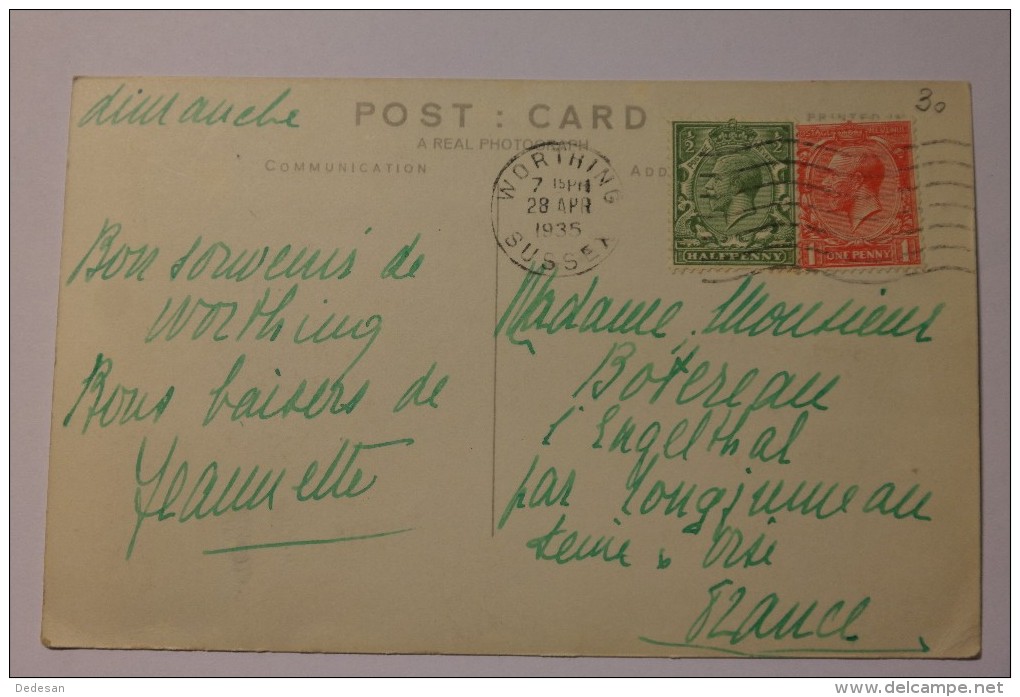 dimanche
POST : CARD
PRINTED IN
30
A REAL PHOTOGRAPH
COMMUNICATION
ADD
WORTHING
7 15PM
28 APR
1935
SUSSEX
½ ½
HALFPENNY
1 ONE PENNY 1
Bon souvenir de
Worthing
Bons baisers de
Jeannette
Madame, Monsieur
Botereau
l'Engelthal
par Longjumeau
Seine & Oise
France
Dedesan
www.delcampe.net